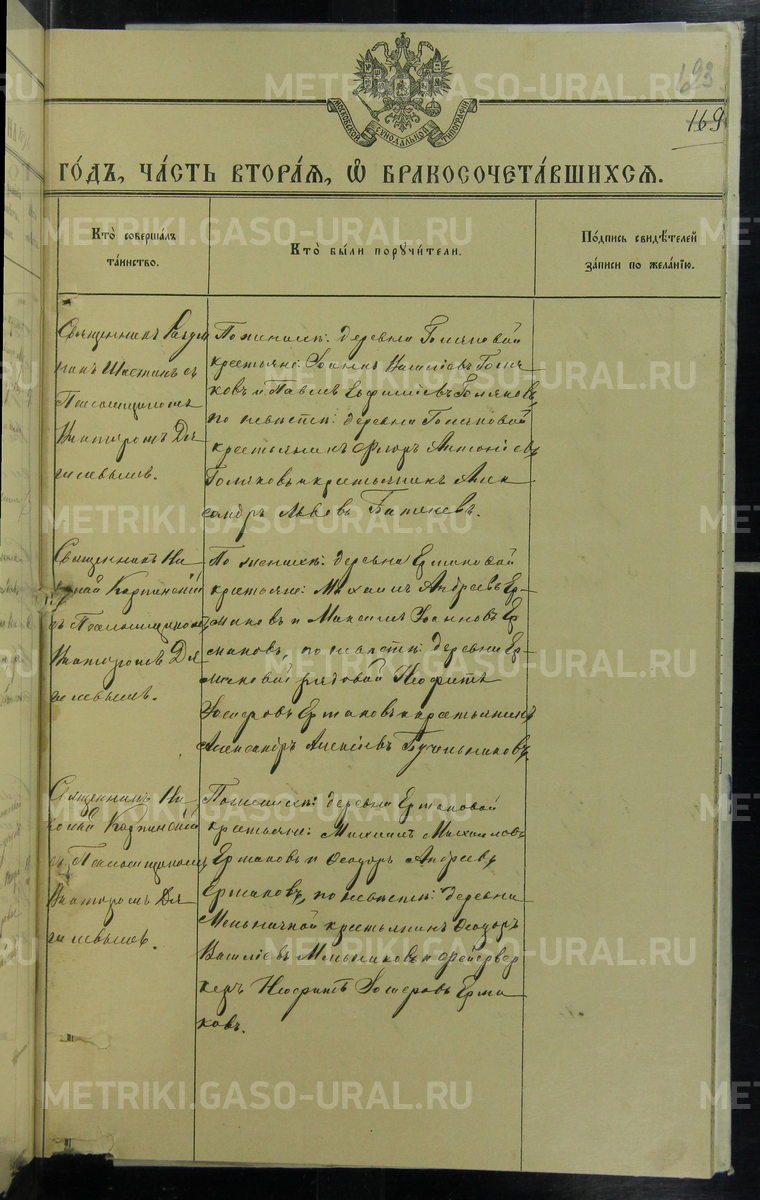 193
169
МОСКОВСКОЙ СѴНОДАЛЬНОЙ ТИПОГРАФІИ
ГО́ДЪ, ЧА́СТЬ ВТОРА́Я, Ѽ БРАКОСОЧЕТА́ВШИХСЯ.
Кто̀ соверша́лъ
та́инство.
Кто̀ бы́ли порꙋчи́тели.
По́дпись свидѣ́телей
за́писи по жела́нїю.
Священникъ
Шастинъ съ
Псаломщикомъ
Викторомъ Дя
гилевымъ.
По женихѣ: деревни Голяковой
крестьяне: Іоаннъ Василіевъ Голя
ковъ и Павелъ Евфиміевъ Голяковъ,
по невѣстѣ: деревни Голяковой
крестьянинъ Флоръ Антоніевъ
Голяковъ и крестьянинъ Алек
сандръ Львовъ
Священникъ Ни
колай Карпинскій
съ Псаломщикомъ
Викторомъ Дя
гилевымъ.
По женихѣ: деревни Ермаковой
крестьяне: Михаилъ Андреевъ Ер-
маковъ и Максимъ Іоанновъ Ер
маковъ, по невѣстѣ: деревни Ер-
маковой рядовой Неофитъ
Ермаковъ и крестьянинъ
Александръ Алексіевъ
Священникъ Ни
колай Карпинскій
съ Псаломщикомъ
Викторомъ Дя
гилевымъ.
По женихѣ: деревни Ермаковой
крестьяне: Михаилъ Михаиловъ
Ермаковъ и Ѳеодоръ Андреевъ
Ермаковъ, по невѣстѣ: деревни
Мельничной крестьянинъ Ѳеодоръ
Василіевъ Мельниковъ и фейервер
керъ Неофитъ Ерма
ковъ.
METRIKI.GASO-URAL.RU